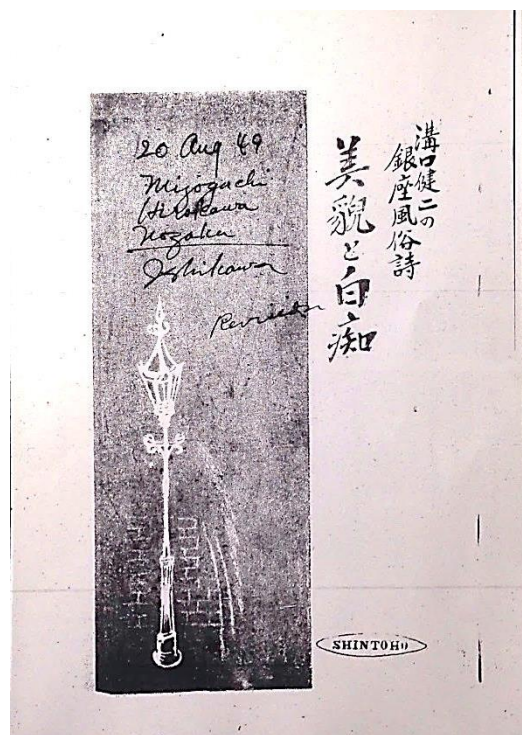 溝口健二の
銀座風俗詩
美貌と白痴
20 Aug 49
Mizoguchi
Hirokawa
Nozaka
Ishikawa
SHINTOHO